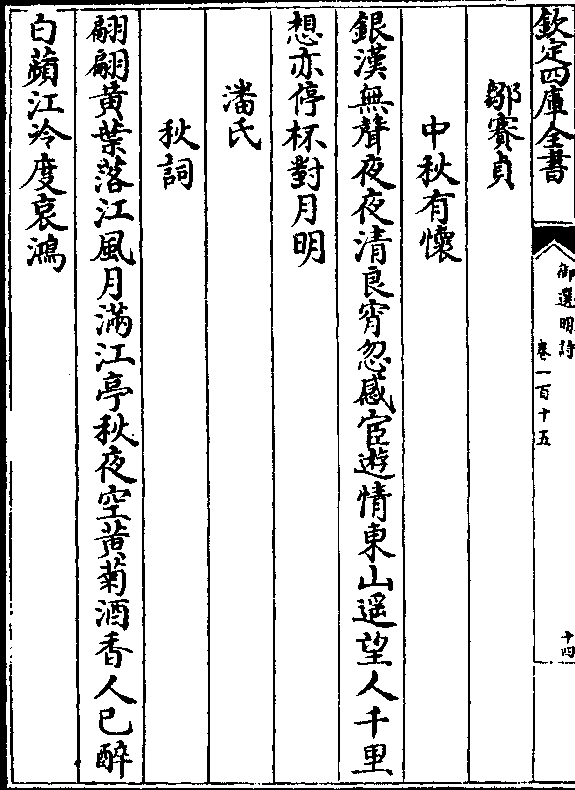 欽定四庫全書
御選明詩
卷一百十五
十四
鄒賽貞
中秋有懷
銀漢無聲夜夜清良宵忽感宦遊情東山遥望人千里
想亦停杯對月明
潘氏
秋詞
翩翩黄葉落江風月滿江亭秋夜空黄菊酒香人已醉
白蘋江冷度哀鴻